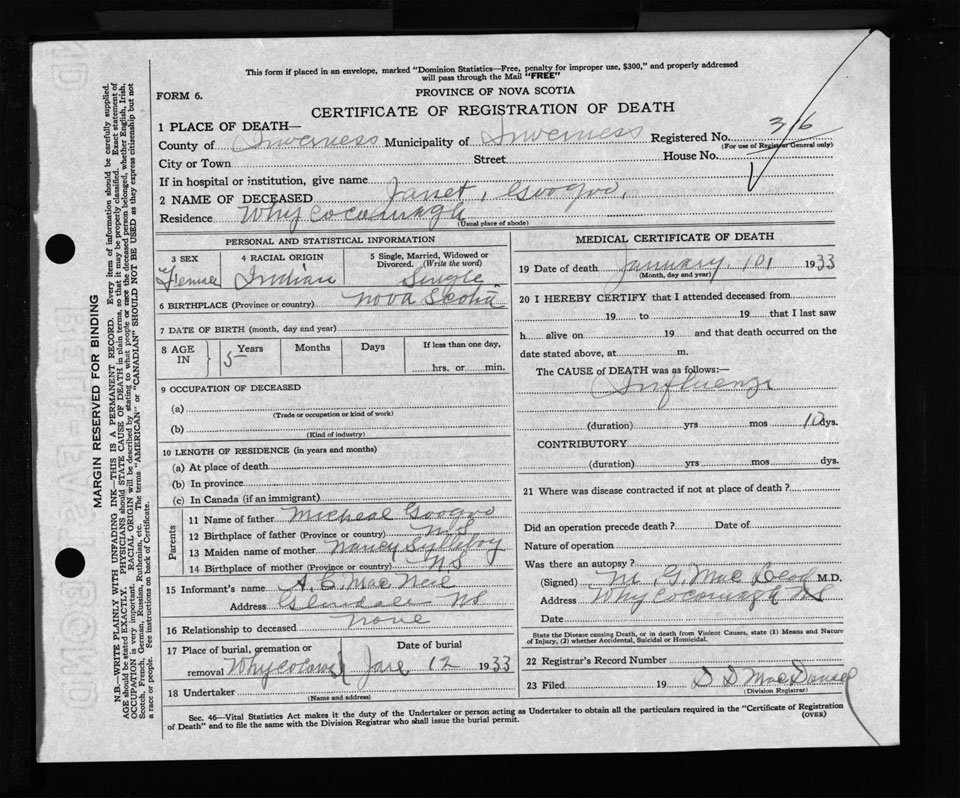 This form if placed in an envelope, marked "Dominion Statistics—Free, penalty for improper use, $300," and properly addressed
will pass through the Mail "FREE"
FORM 6.
PROVINCE OF NOVA SCOTIA
CERTIFICATE OF REGISTRATION OF DEATH
1 PLACE OF DEATH—
County of Inverness Municipality of Inverness Registered No. 316
(For use of Registrar General only)
City or Town Street House No.
If in hospital or institution, give name
2 NAME OF DECEASED Janet, Googoo,
Residence Whycocomagh
(Usual place of abode)
PERSONAL AND STATISTICAL INFORMATION
3 SEX 4 RACIAL ORIGIN 5 Single, Married, Widowed or
Divorced. (Write the word)
Female Indian Single
6 BIRTHPLACE (Province or country) Nova Scotia
7 DATE OF BIRTH (month, day and year)
8 AGE IN Years Months Days If less than one day,
5 hrs. or min.
9 OCCUPATION OF DECEASED
(a)
(Trade or occupation or kind of work)
(b)
(Kind of industry)
10 LENGTH OF RESIDENCE (in years and months)
(a) At place of death
(b) In province
(c) In Canada (if an immigrant)
Parents
11 Name of father Micheal Googoo
12 Birthplace of father (Province or country) NS
13 Maiden name of mother Nancy Sylliboy
14 Birthplace of mother (Province or country) NS
15 Informant's name A. C. Mac Neil
Address Glendale NS
16 Relationship to deceased None
17 Place of burial, cremation or Date of burial
removal Jan 12 1933
18 Undertaker
(Name and address)
MEDICAL CERTIFICATE OF DEATH
19 Date of death January 10, 1933
(Month, day and year)
20 I HEREBY CERTIFY that I attended deceased from
19 to 19 that I last saw
h alive on 19 and that death occurred on the
date stated above, at m.
The CAUSE of DEATH was as follows:—
Influenza
(duration) yrs mos 10 dys.
CONTRIBUTORY
(duration) yrs mos dys.
21 Where was disease contracted if not at place of death?
Did an operation precede death? Date of
Nature of operation
Was there an autopsy?
(Signed) M. G. Mac Leod M.D.
Address Whycocomagh NS
Date
State the Disease causing Death, or in death from Violent Causes, state (1) Means and Nature
of Injury, (2) whether Accidental, Suicidal or Homicidal.
22 Registrar's Record Number
23 Filed 19 D D MacDonald
(Division Registrar)
Sec. 46—Vital Statistics Act makes it the duty of the Undertaker or person acting as Undertaker to obtain all the particulars required in the "Certificate of Registration
of Death" and to file the same with the Division Registrar who shall issue the burial permit. (OVER)
MARGIN RESERVED FOR BINDING
N.B.—WRITE PLAINLY WITH UNFADING INK—THIS IS A PERMANENT RECORD. Every item of information should be carefully supplied.
AGE should be stated EXACTLY. PHYSICIANS should STATE CAUSE OF DEATH in plain terms, so that it may be properly classified. Exact statement of
OCCUPATION is very important. RACIAL ORIGIN will be described by stating to what people or race the deceased person belonged, whether English, Irish,
Scotch, French, German, Russian, Ruthenian, etc. The terms "AMERICAN" or "CANADIAN" SHOULD NOT BE USED as they express citizenship but not
a race or people. See instructions on back of Certificate.